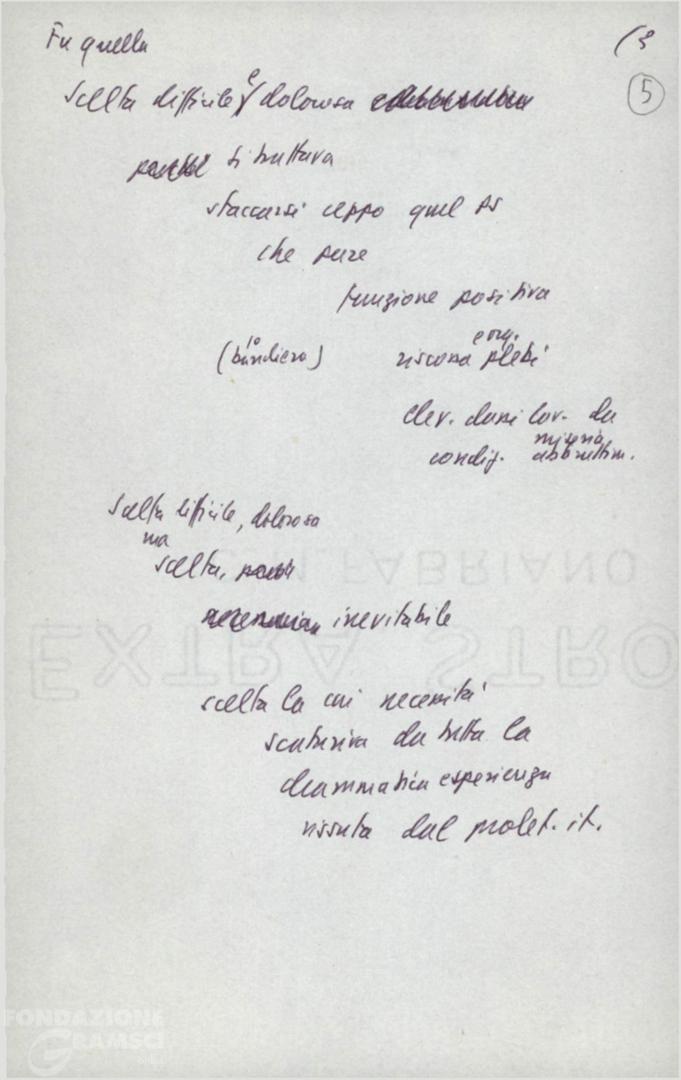 Fu quella (3
5
scelta difficile e dolorosa
si trattava
staccarsi ceppo quel PS
che pure
funzione positiva
(bandiera) riscossa e org. plebi
elev. lav. da
condiz. miseria abbrutim.
Scelta difficile, dolorosa
ma
scelta,
necessaria inevitabile
scelta la cui necessità
scaturiva da tutta la
drammatica esperienza
vissuta dal prolet. it.
C.M. FABRIANO
EXTRA STRO
FONDAZIONE
GRAMSCI